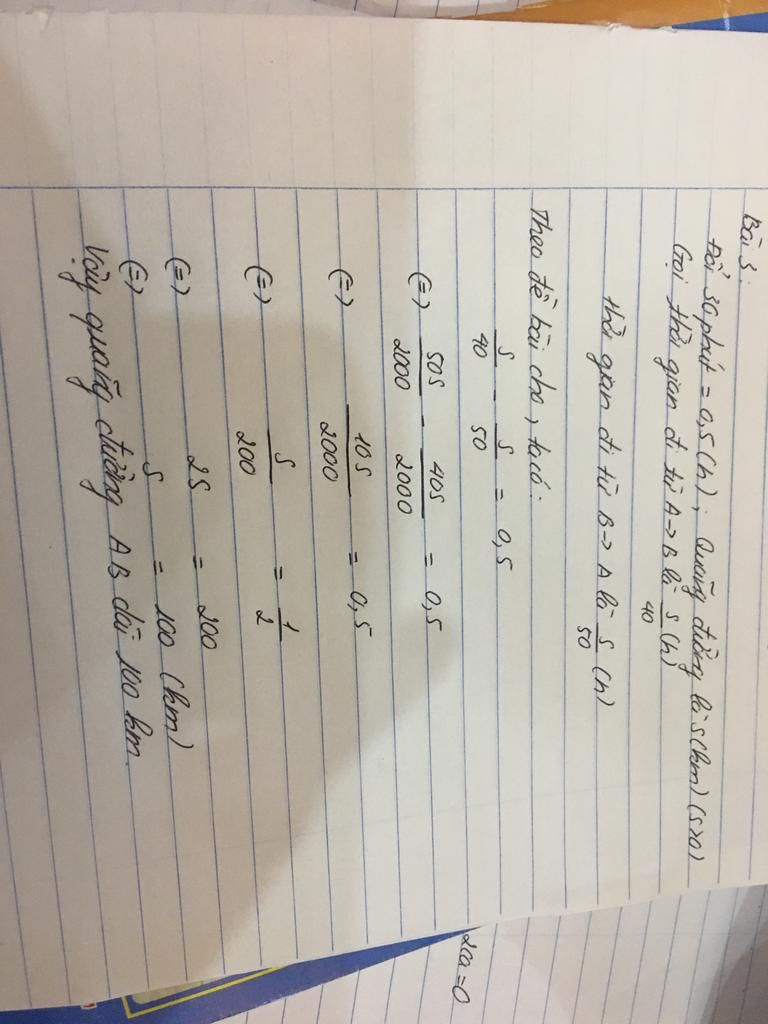 Bài 3:
Đổi 30 phút = 0,5 (h); Quãng đường là S(km) (S>0)
Gọi thời gian đi từ A→B là S/40 (h)
thời gian đi từ B→A là S/50 (h)
Theo đề bài cho, ta có:
S/40 - S/50 = 0,5
(=) 50S/2000 - 40S/2000 = 0,5
(=) 10S/2000 = 0,5
(=) S/200 = 1/2
(=) 2S = 200
(=) S = 100 (km)
Vậy quãng đường AB dài 100 km.
2ca=0